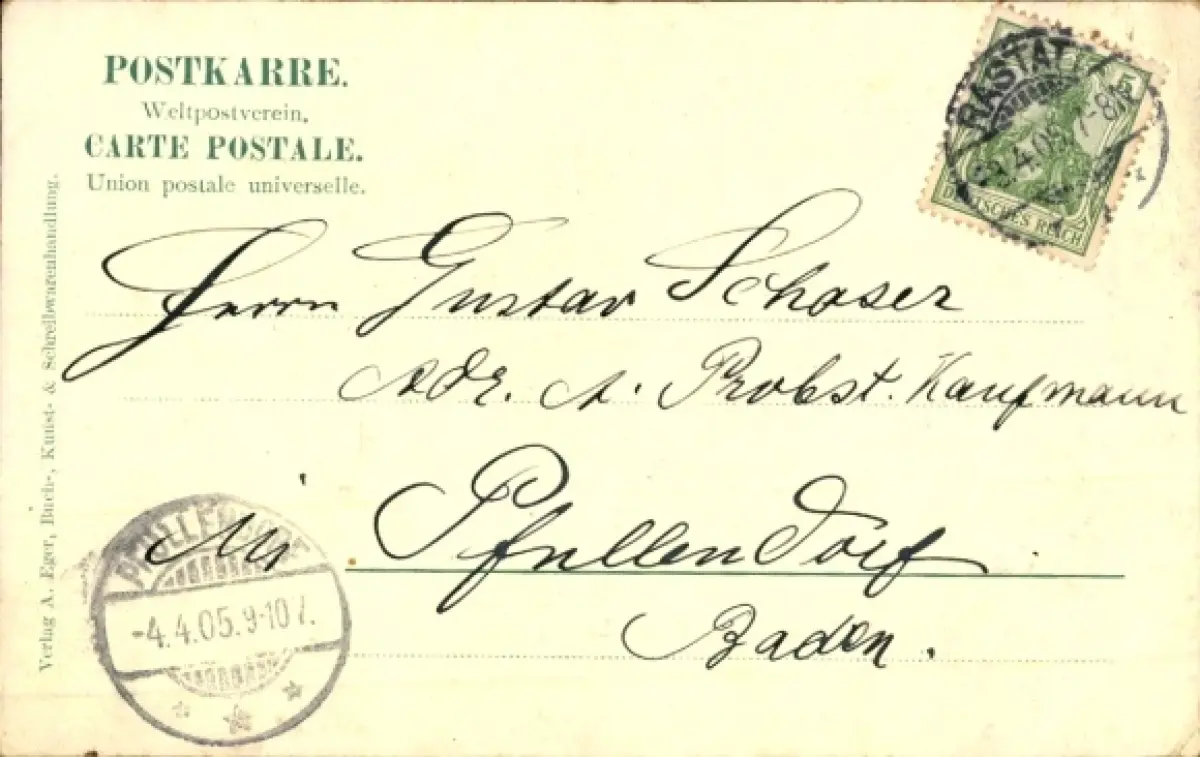 POSTKARRE.
Weltpostverein.
CARTE POSTALE.
Union postale universelle.
RASTATT
3.4.05. 7-8N
5
DEUTSCHES REICH
Herrn Gustav Schoser
Adr. A. Probst. Kaufmann
in Pfullendorf
Baden.
PFULLENDORF
-4.4.05.9-10V.
Verlag A. Eger, Buch-, Kunst- & Schreibwarenhandlung.